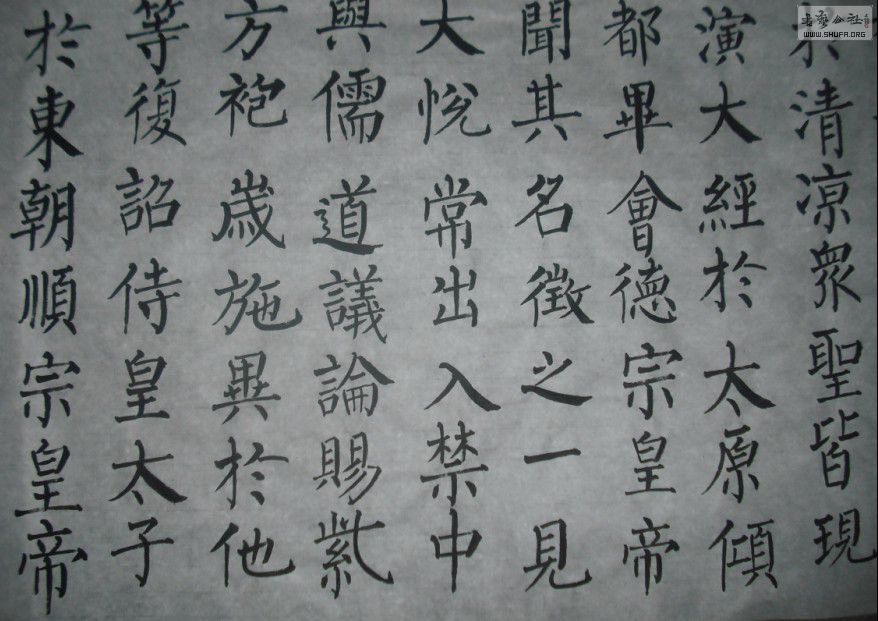 於清涼衆聖皆現
演大經於太原傾
都畢會德宗皇帝
聞其名徵之一見
大悅常出入禁中
與儒道議論賜紫
方袍歲施異於他
等復詔侍皇太子
於東朝順宗皇帝
書藝公社
WWW.SHUFA.ORG